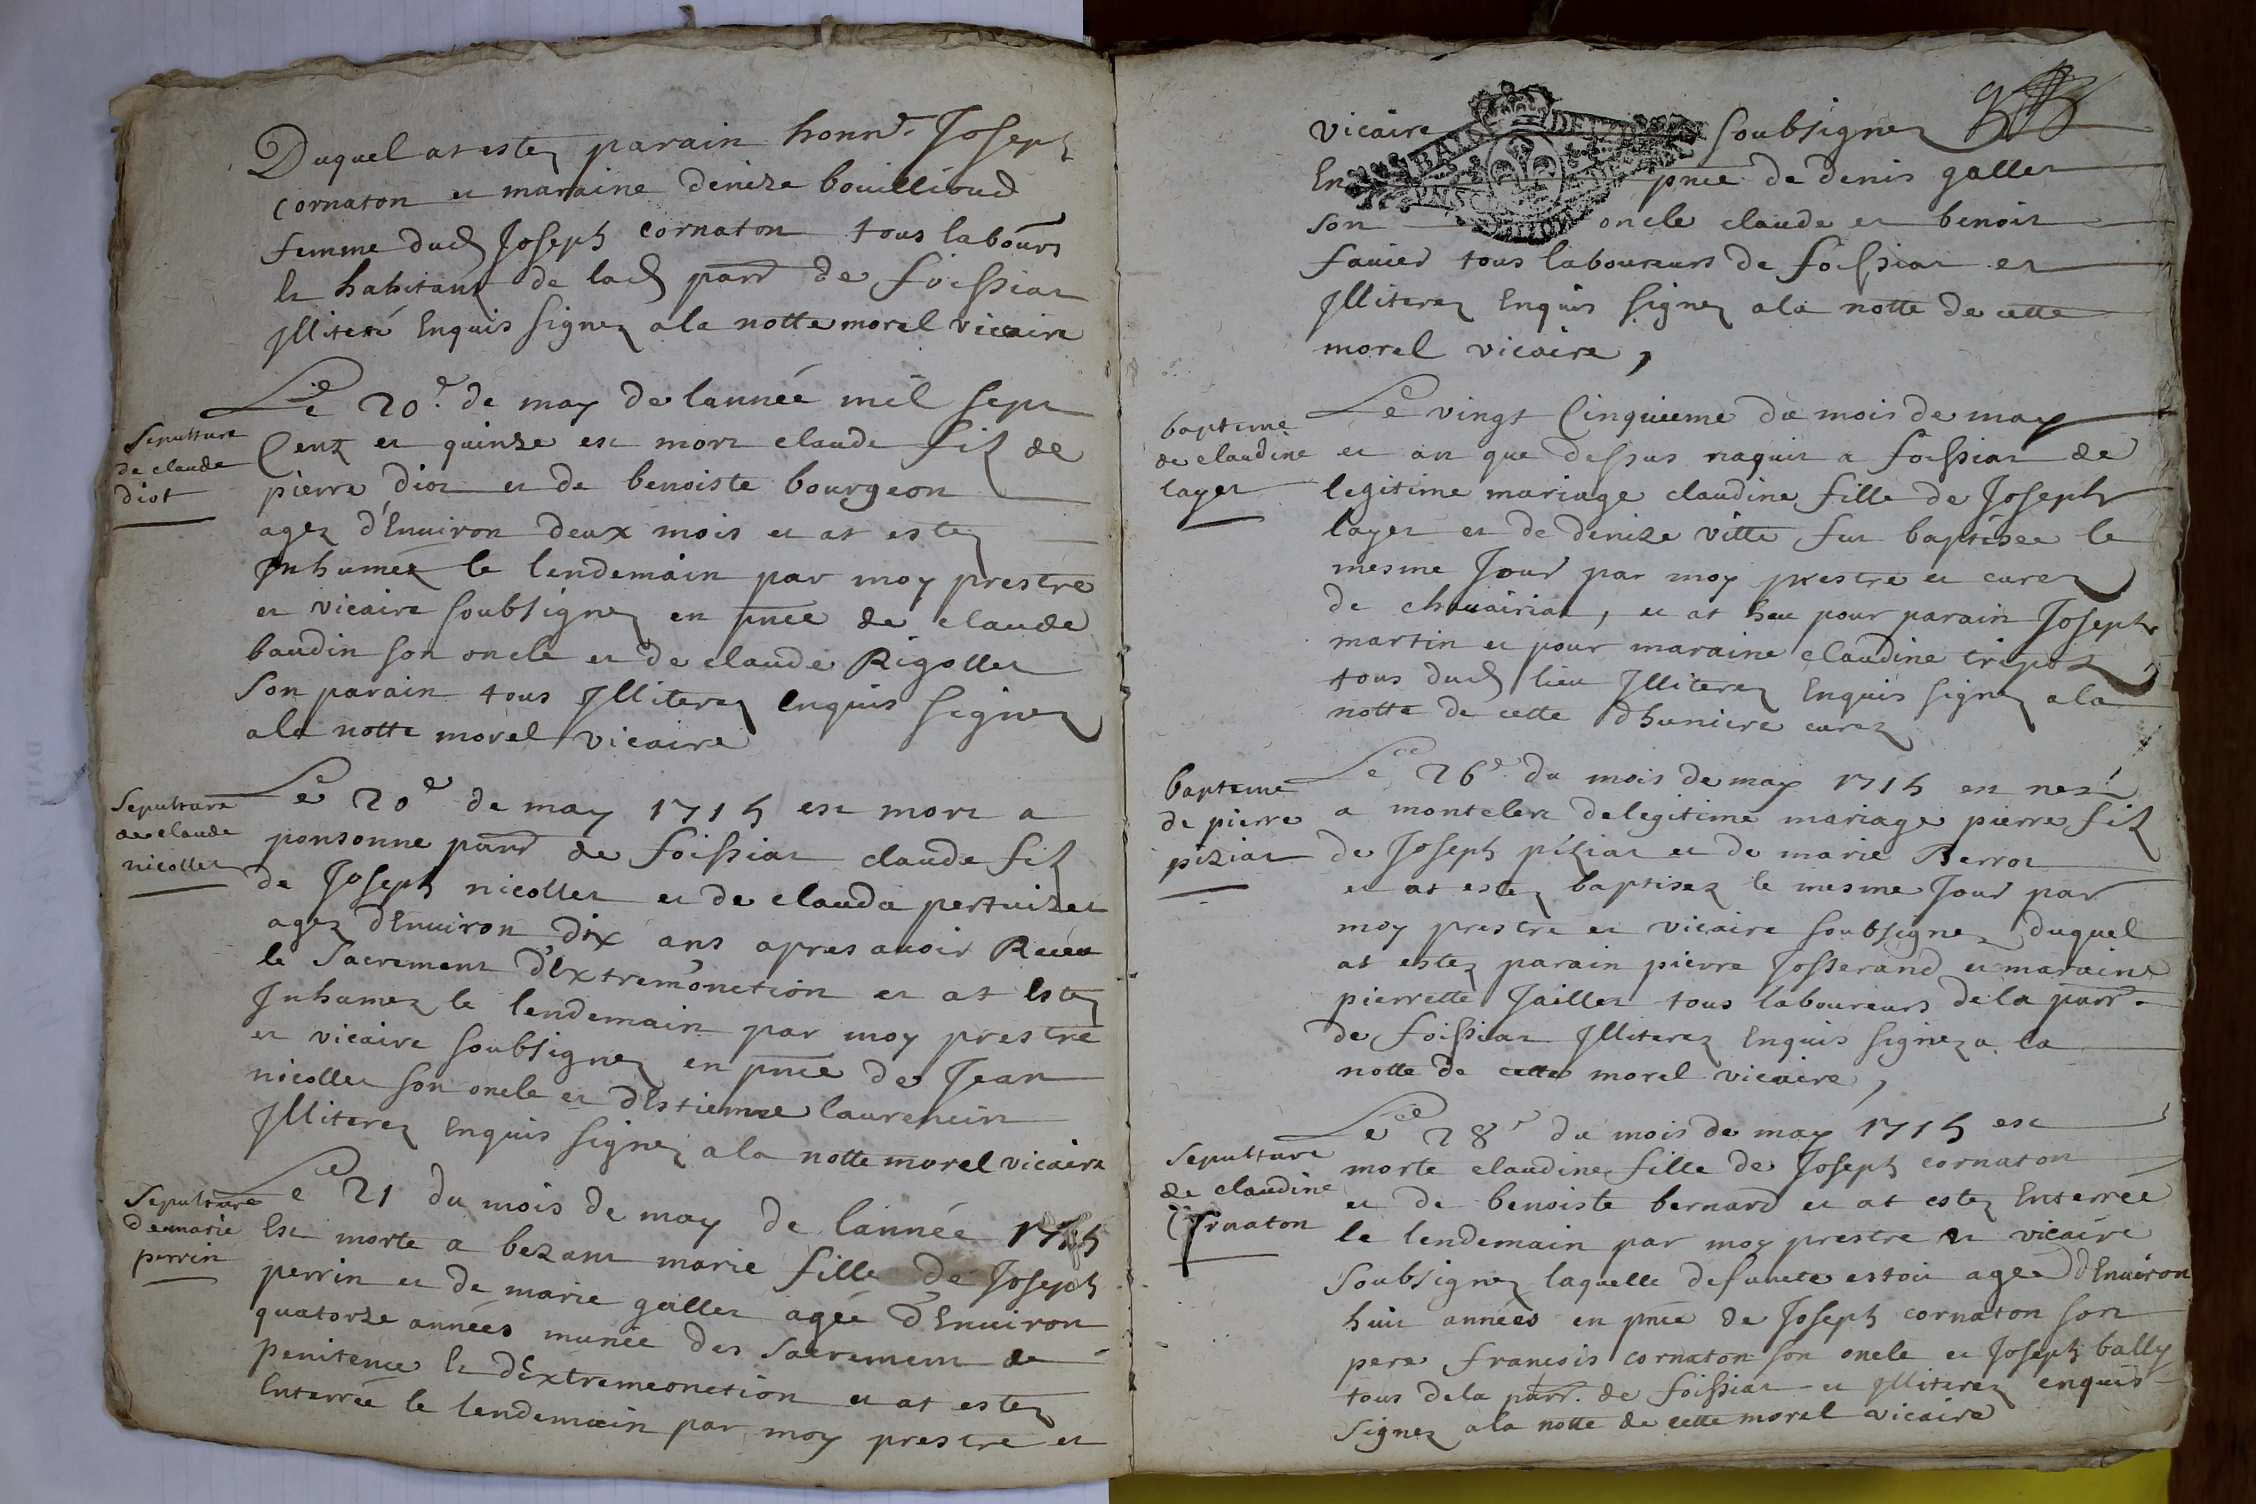 Duquel at estez parain honn.e Joseph
cornaton et maraine denize bouillioud
femme dud Joseph cornaton tous labours
et habitant de lad parr de foissiat
Jlliteré Enquis signez a la notte morel vicaire
Sepulture
de claude
diot
Le 20.e de may de lannée mil sept
Centz et quinze est mort claude filz de
pierre diot et de benoiste bourgeon
agez d'Enuiron deux mois et at estez
Jnhumez le lendemain par moy prestre
et vicaire soubsignez en pnce de claude
baudin son oncle et de claude Rigollet
son parain tous Jlliterez enquis signez
a la notte morel vicaire
Sepulture
de claude
nicollet
Le 20e de may 1715 est mort a
ponsonne parr de foissiat claude filz
de Joseph nicollet et de clauda pertuizet
agez d'Enuiron dix ans apres auoir Receu
le Sacrement d'Extremonction et at Estez
Jnhumez le lendemain par moy prestre
et vicaire soubsignez en pnce de Jean
nicollet son oncle et d'Estienne laurencin
Jlliterez Enquis signez a la notte morel vicaire
Sepulture
de marie
perrin
Le 21 du mois de may de lannée 1715
Est morte a bezant marie fille de Joseph
perrin et de marie gallet agée d'Enuiron
quatorze années munie des Sacrement de
penitence et d'Extremeonction et at estez
Enterrée le lendemain par moy prestre et
vicaire soubsignez
En pnce de denis gallet
son oncle claude et benoit
fauier tous laboureurs de foissiat et
Jlliterez Enquis signez a la notte de cette
morel vicaire,
bapteme
de claudine
layet
Le vingt Cinquieme du mois de may
et an que dessus naquit a foissiat de
legitime mariage claudine fille de Joseph
layet et de denize vitte fut baptisée le
mesme Jour par moy prestre et curez
de chauairiat, et at heu pour parain Joseph
martin et pour maraine claudine tripoz
tous dud lieu Jlliterez Enquis signez a la
notte de cette dhumiere curez
bapteme
de pierre
piziat
Le 26e du mois de may 1715 est nez
a montelert de legitime mariage pierre filz
de Joseph piziat et de marie Berrot
et at estez baptisez le mesme Jour par
moy prestre et vicaire soubsignez duquel
at estez parain pierre Josserand et maraine
pierrette Jaillet tous laboureurs de la parr.
de foissiat Jlliterez Enquis signez a la
notte de cette morel vicaire,
Sepulture
de claudine
Cornaton
Le 28e du mois de may 1715 est
morte claudine fille de Joseph cornaton
et de benoiste bernard et at estez Enterrée
le lendemain par moy prestre et vicaire
soubsignez laquelle defuncte estoit agée d'Enuiron
huit années en pnce de Joseph cornaton son
pere francois cornaton son oncle et Joseph bally
tous de la parr. de foissiat et Jlliterez enquis
signez a la notte de cette morel vicaire